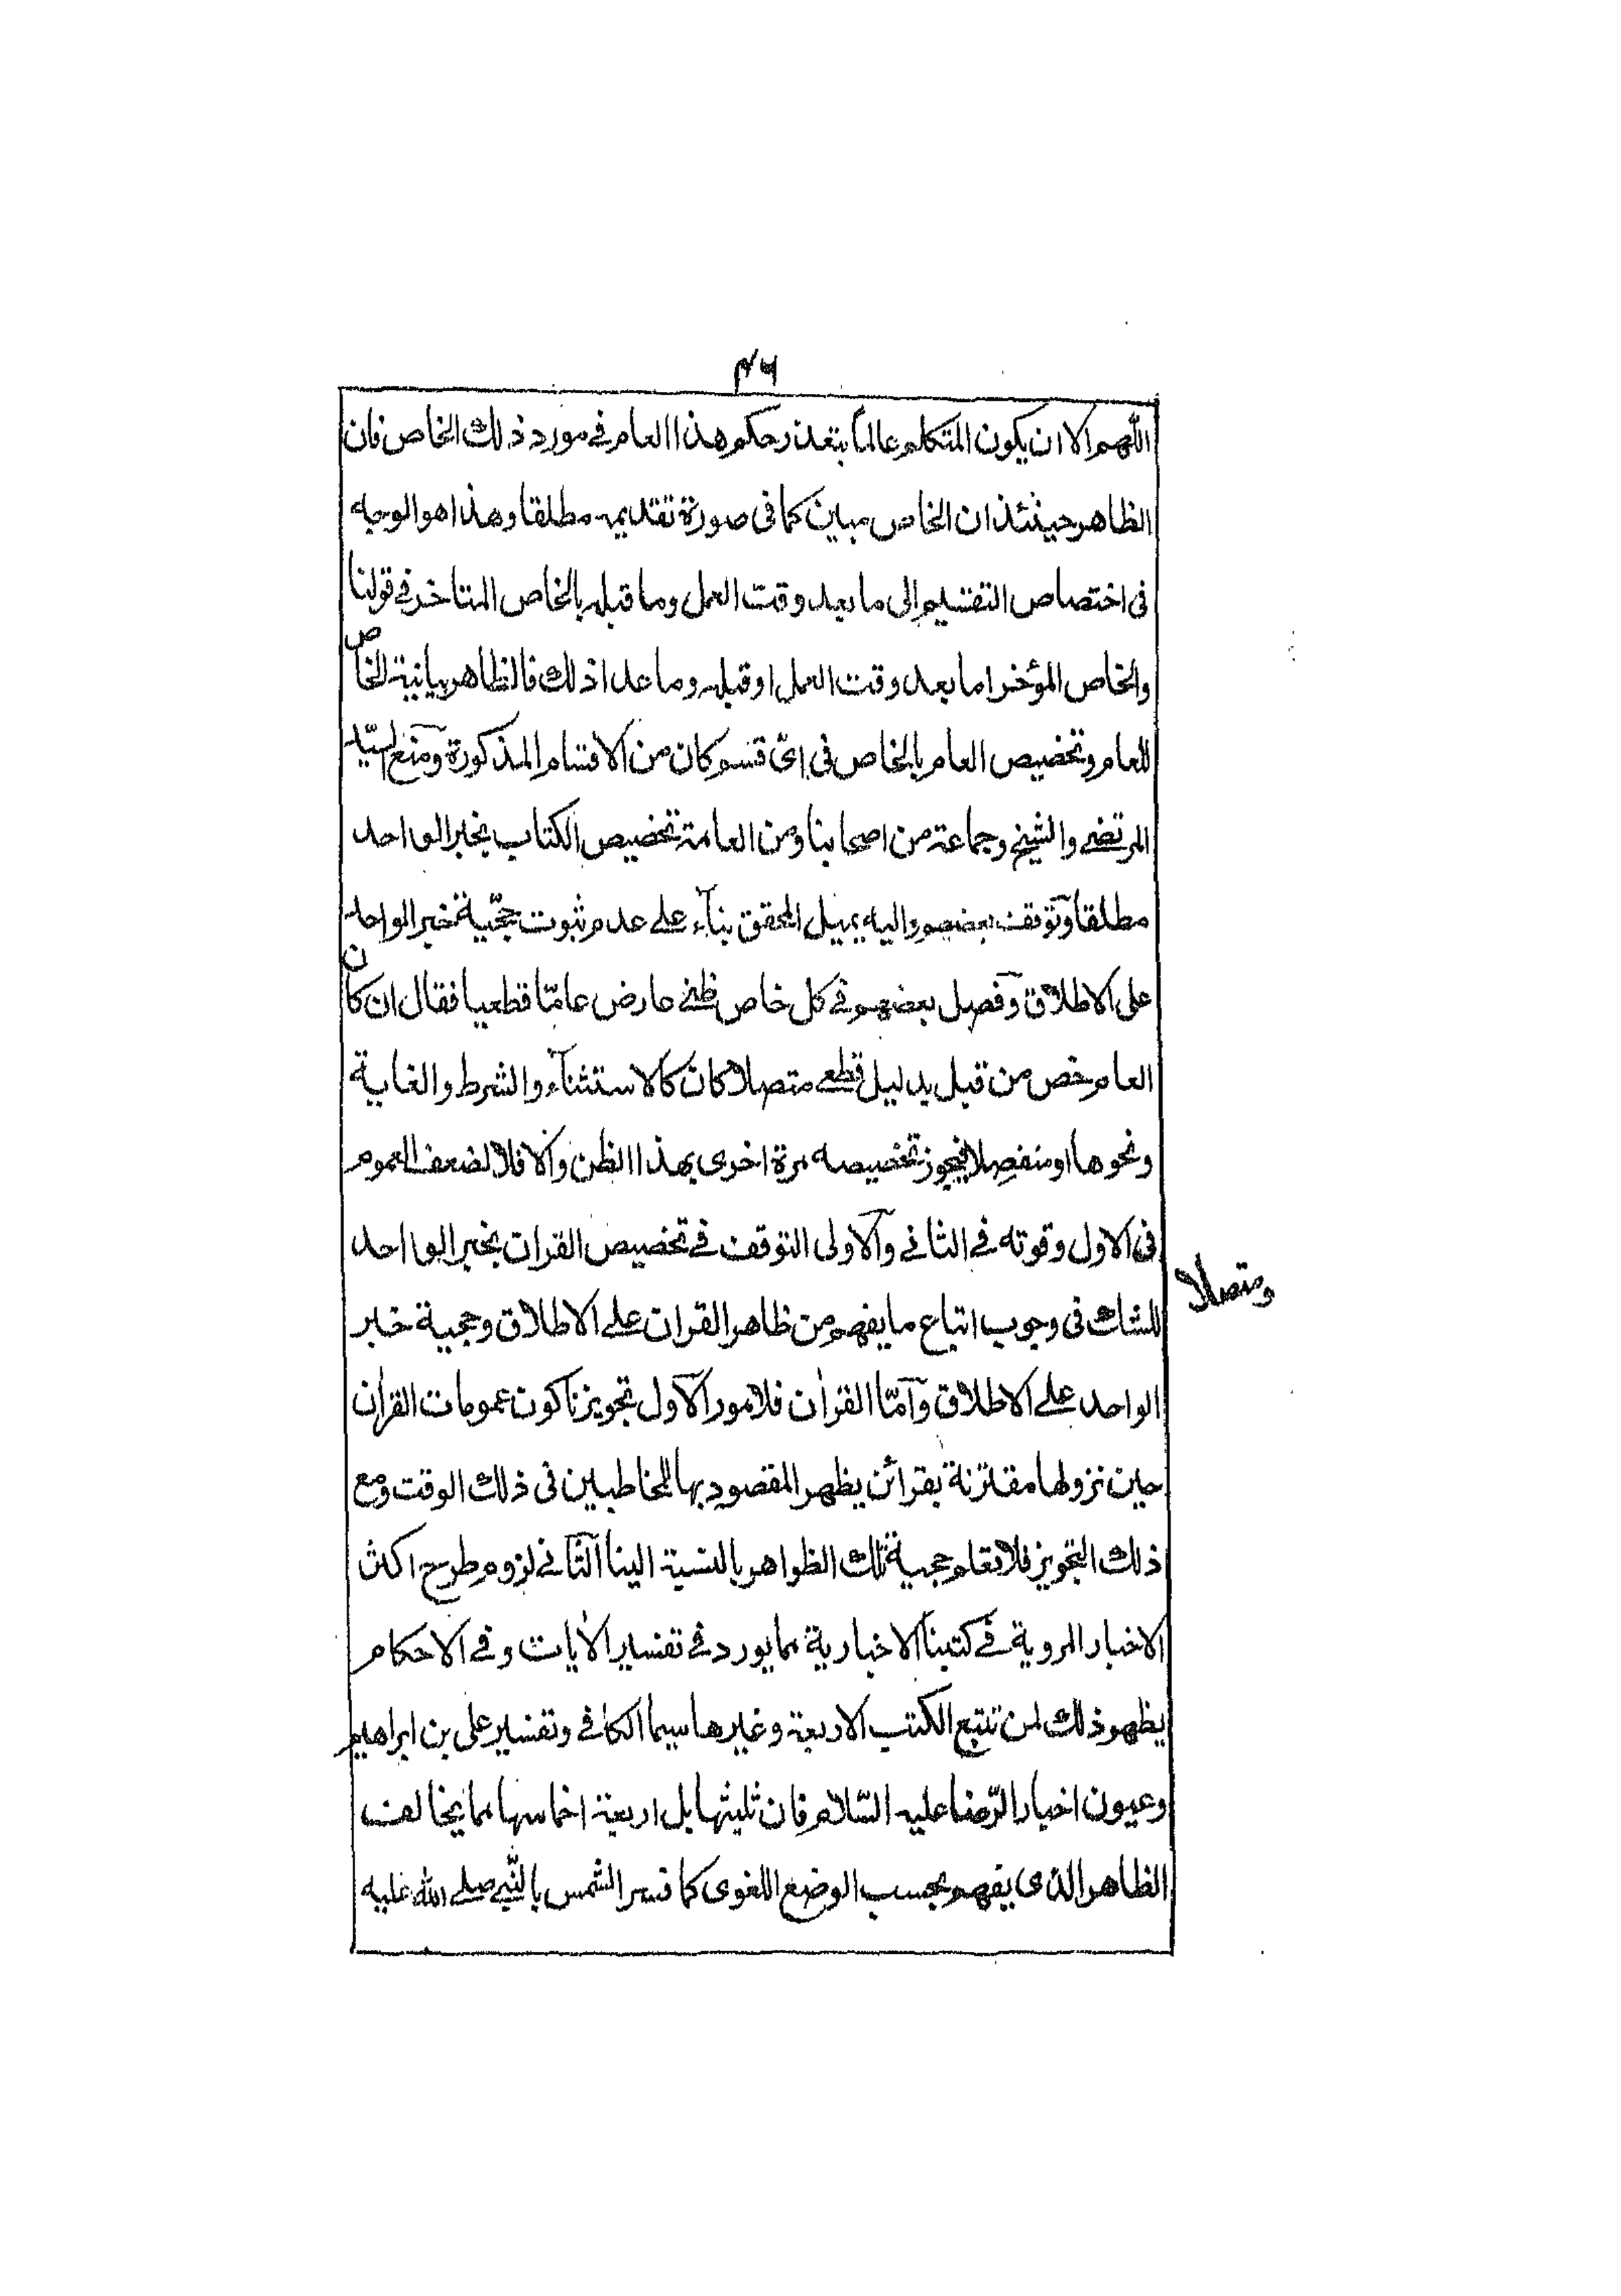 ٤٦
اللّٰهم الا ان يكون المتكلم عالماً بتعذر حكم هذا العام فى مورد ذلك الخاص فان
الظاهر حينئذ ان الخاص مبين كما فى صورة تقديمه مطلقا وهذا هو الوجه
فى اختصاص التقسيم الى ما بعد وقت العمل وما قبله بالخاص المتاخر فى قولنا
والخاص المؤخر اما بعد وقت العمل او قبله وما عدا ذلك فالظاهر بيانية الخاص
للعام وتخصيص العام بالخاص فى اىّ قسم كان من الاقسام المذكورة ومنع السيّد
المرتضى والشيخ وجماعة من اصحابنا ومن العامة تخصيص الكتاب بخبر الواحد
مطلقا وتوقف بعضهم واليه يميل المحقق بناۤء على عدم ثبوت حجّية خبر الواحد
على الاطلاق وفصل بعضهم فى كل خاص ظنى عارض عامّا قطعيا فقال ان كان
العام خص من قبل بدليل قطعى متصلا كان كالاستثناۤء والشرط والغاية
ونحوها او منفصلا فيجوز تخصيصه مرة اخرى بهذا الظن والا فلا لضعف العموم
فى الاول وقوته فى الثانى والاولى التوقف فى تخصيص القران بخبر الواحد
ومتصلا
للشك فى وجوب اتباع ما يفهم من ظاهر القران على الاطلاق وحجية خبر
الواحد على الاطلاق وامّا القرآن فلامور الاول تجويزنا كون عمومات القرآن
حين نزولها مقترنة بقرائن يظهر المقصود بها للمخاطبين فى ذلك الوقت ومع
ذلك التجويز فلا نعلم حجية تلك الظواهر بالنسبة الينا الثانى لزوم طرح اكثر
الاخبار المروية فى كتبنا الاخبارية مما يورد فى تفسير الآيات وفى الاحكام
يظهر ذلك لمن تتبع الكتب الاربعة وغيرها سيما الكافى وتفسير على بن ابراهيم
وعيون اخبار الرّضا عليه السّلام فان ثلثيها بل اربعة اخماسها مما يخالف
الظاهر الذى يفهم بحسب الوضع اللغوى كما فسر الشمس بالنّبى صلى الله عليه